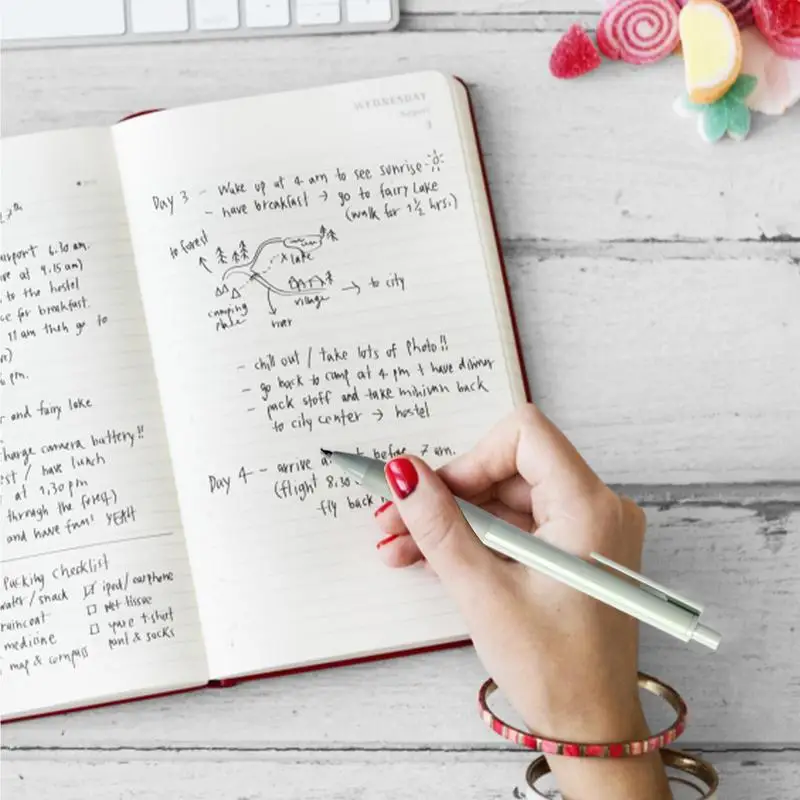 7th
airport 6.30 am.
at 9.15 am)
to the hostel
for breakfast.
11 am then go to
6 pm.
and fairy lake
charge camera battery!!
/ have lunch
at 1.30 pm
through the forest)
and have fun! YEAH
Packing Checklist
water/snack ☑ ipod/earphone
raincoat ☐ wet tissue
medicine ☐ spare t-shirt
map & compass pant & socks
WEDNESDAY
August
3
Day 3 - Wake up at 4 am to see sunrise
- have breakfast → go to fairy Lake
(walk for 1½ hrs.)
to forest
lake
camping place
village
→ to city
river
- chill out / take lots of photo!!
- go back to camp at 4 pm + have dinner
- pack stoff and take minivan back
to city center → hostel
Day 4 - arrive before 7 am.
(flight 8.30
fly back